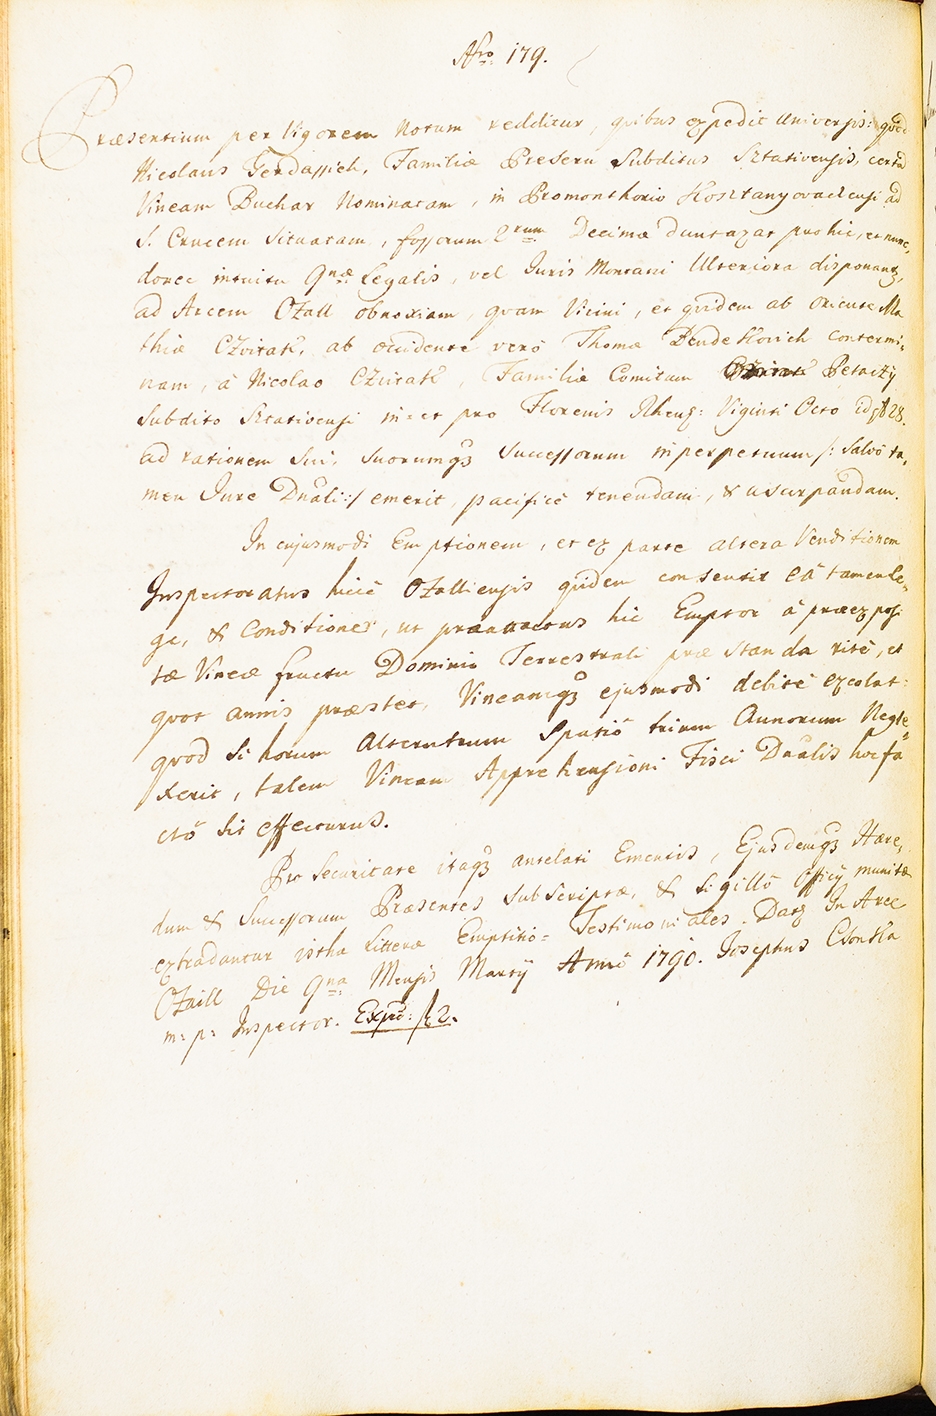 Nro 179.
Præsentium per Vigorem Notum redditur, quibus expedit Universis: quod
Nicolaus Gerdassich, Familiæ Preseru Subditus Sztativensis, certa
Vineam Buchar Nominatam, in Promonthorio Hosztanyovachensi ad
S. Crucem Situatam, fossorum 2rum Decimæ duntaxat pro hic, et nunc,
donec intuitu 9næ Legalis, vel Juris Montani Ulteriora disponantur,
ad Arcem Ozall obnoxiam, quam Vicini, et quidem ab oriente Ma
thiæ Czvitak, ab occidente verò Thomæ Bendekovich contermi=
nam, à Nicolao Czvitak, Familiæ Comitum Petazÿ
Subdito Sztativensi in= et pro Florenis Rhens: Viginti Octo id est 28.
ad rationem Sui, suorumq3 Successorum in perpetuum /: Salvô ta=
men Jure Dnali :/ emerit, pacificè tenendam, & usurpandam.
In cujusmodi Emptionem, et ex parte altera Venditionem
Inspectoratus hicce Ozalliensis quidem consentit eâ tamen le=
ge, & Conditione, ut præattactus hic Emptor à præexposi
tæ Vineæ fructu Dominio Terrestrali præstanda ritè, et
quot annis præstet, Vineamq3 ejusmodi debitè excolat:
quod si horum Alterutrum Spatiô trium Annorum Negle
xerit, talem Vineam Apprehensioni Fisci Dnalis hoc fa
ctô sit effecturus.
Pro Securitate itaq3 antelati Emencis, Ejusdemq3 Hære,
dum & Successorum Præsentes subscriptæ, & sigillô Officÿ munitæ
extradantur istha Litteræ Emptitio= Testimoniales. Datæ In Arce
Ozaill Die 9na Mensis Martÿ Annô 1790. Josephus Csonka
m: p: Inspector. Exprõ: f 2.